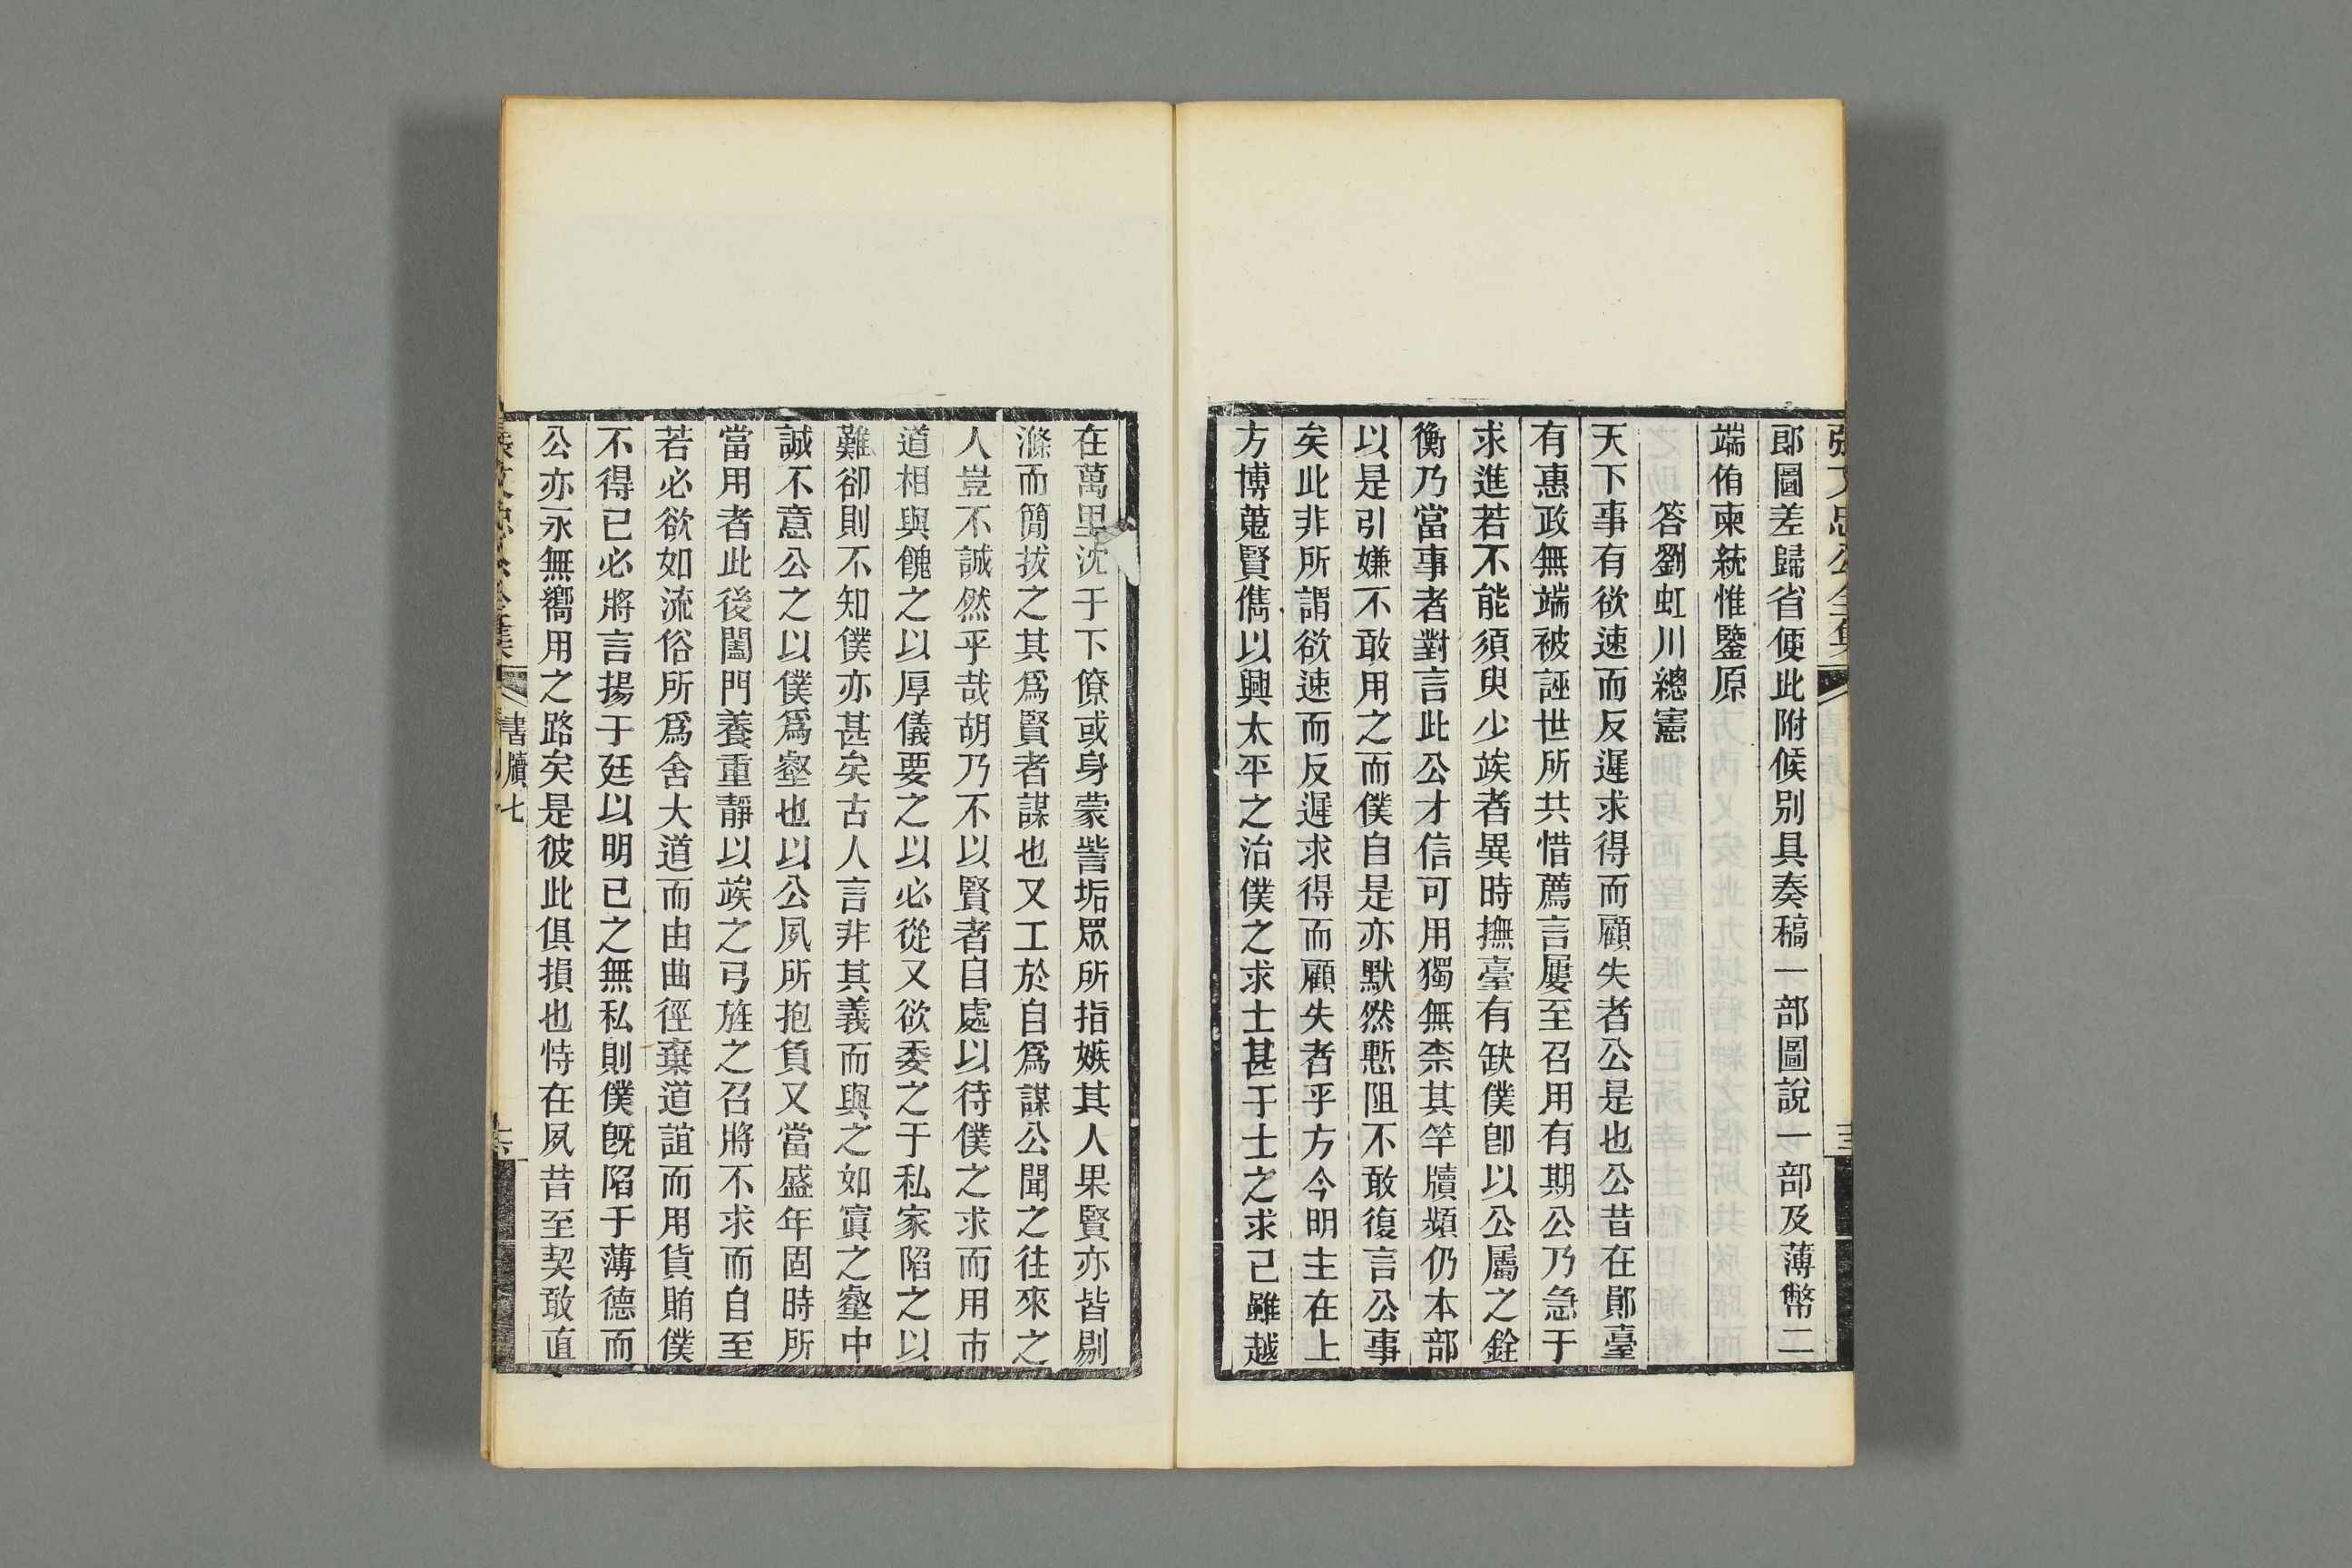 張文忠公全集
郎圖差歸省便此附候别具奏稿一部圖說一部及薄幣二
端侑柬統惟鑒原
答劉虹川總憲
天下事有欲速而反遲求得而顧失者公是也公昔在鄖臺
有惠政無端被誣世所共惜薦言屢至召用有期公乃急于
求進若不能須臾少竢者異時撫臺有缺僕卽以公屬之銓
衡乃當事者對言此公才信可用獨無柰其竿牘頻仍本部
以是引嫌不敢用之而僕自是亦默然慙阻不敢復言公事
矣此非所謂欲速而反遲求得而顧失者乎方今明主在上
方博蒐賢儁以興太平之治僕之求士甚于士之求己雖越
在萬里沈于下僚或身蒙訾垢眾所指嫉其人果賢亦皆剔
滌而簡拔之其爲賢者謀也又工於自爲謀公聞之往來之
人豈不誠然乎哉胡乃不以賢者自處以待僕之求而用市
道相與餽之以厚儀要之以必從又欲委之于私家陷之以
難卻則不知僕亦甚矣古人言非其義而與之如寘之壑中
誠不意公之以僕爲壑也以公夙所抱負又當盛年固時所
當用者此後闔門養重靜以竢之弓旌之召將不求而自至
若必欲如流俗所爲舍大道而由曲徑棄道誼而用貨賄僕
不得已必將言揚于廷以明己之無私則僕旣陷于薄德而
公亦永無嚮用之路矣是彼此俱損也恃在夙昔至契敢直
張文忠公全集
書牘七
六